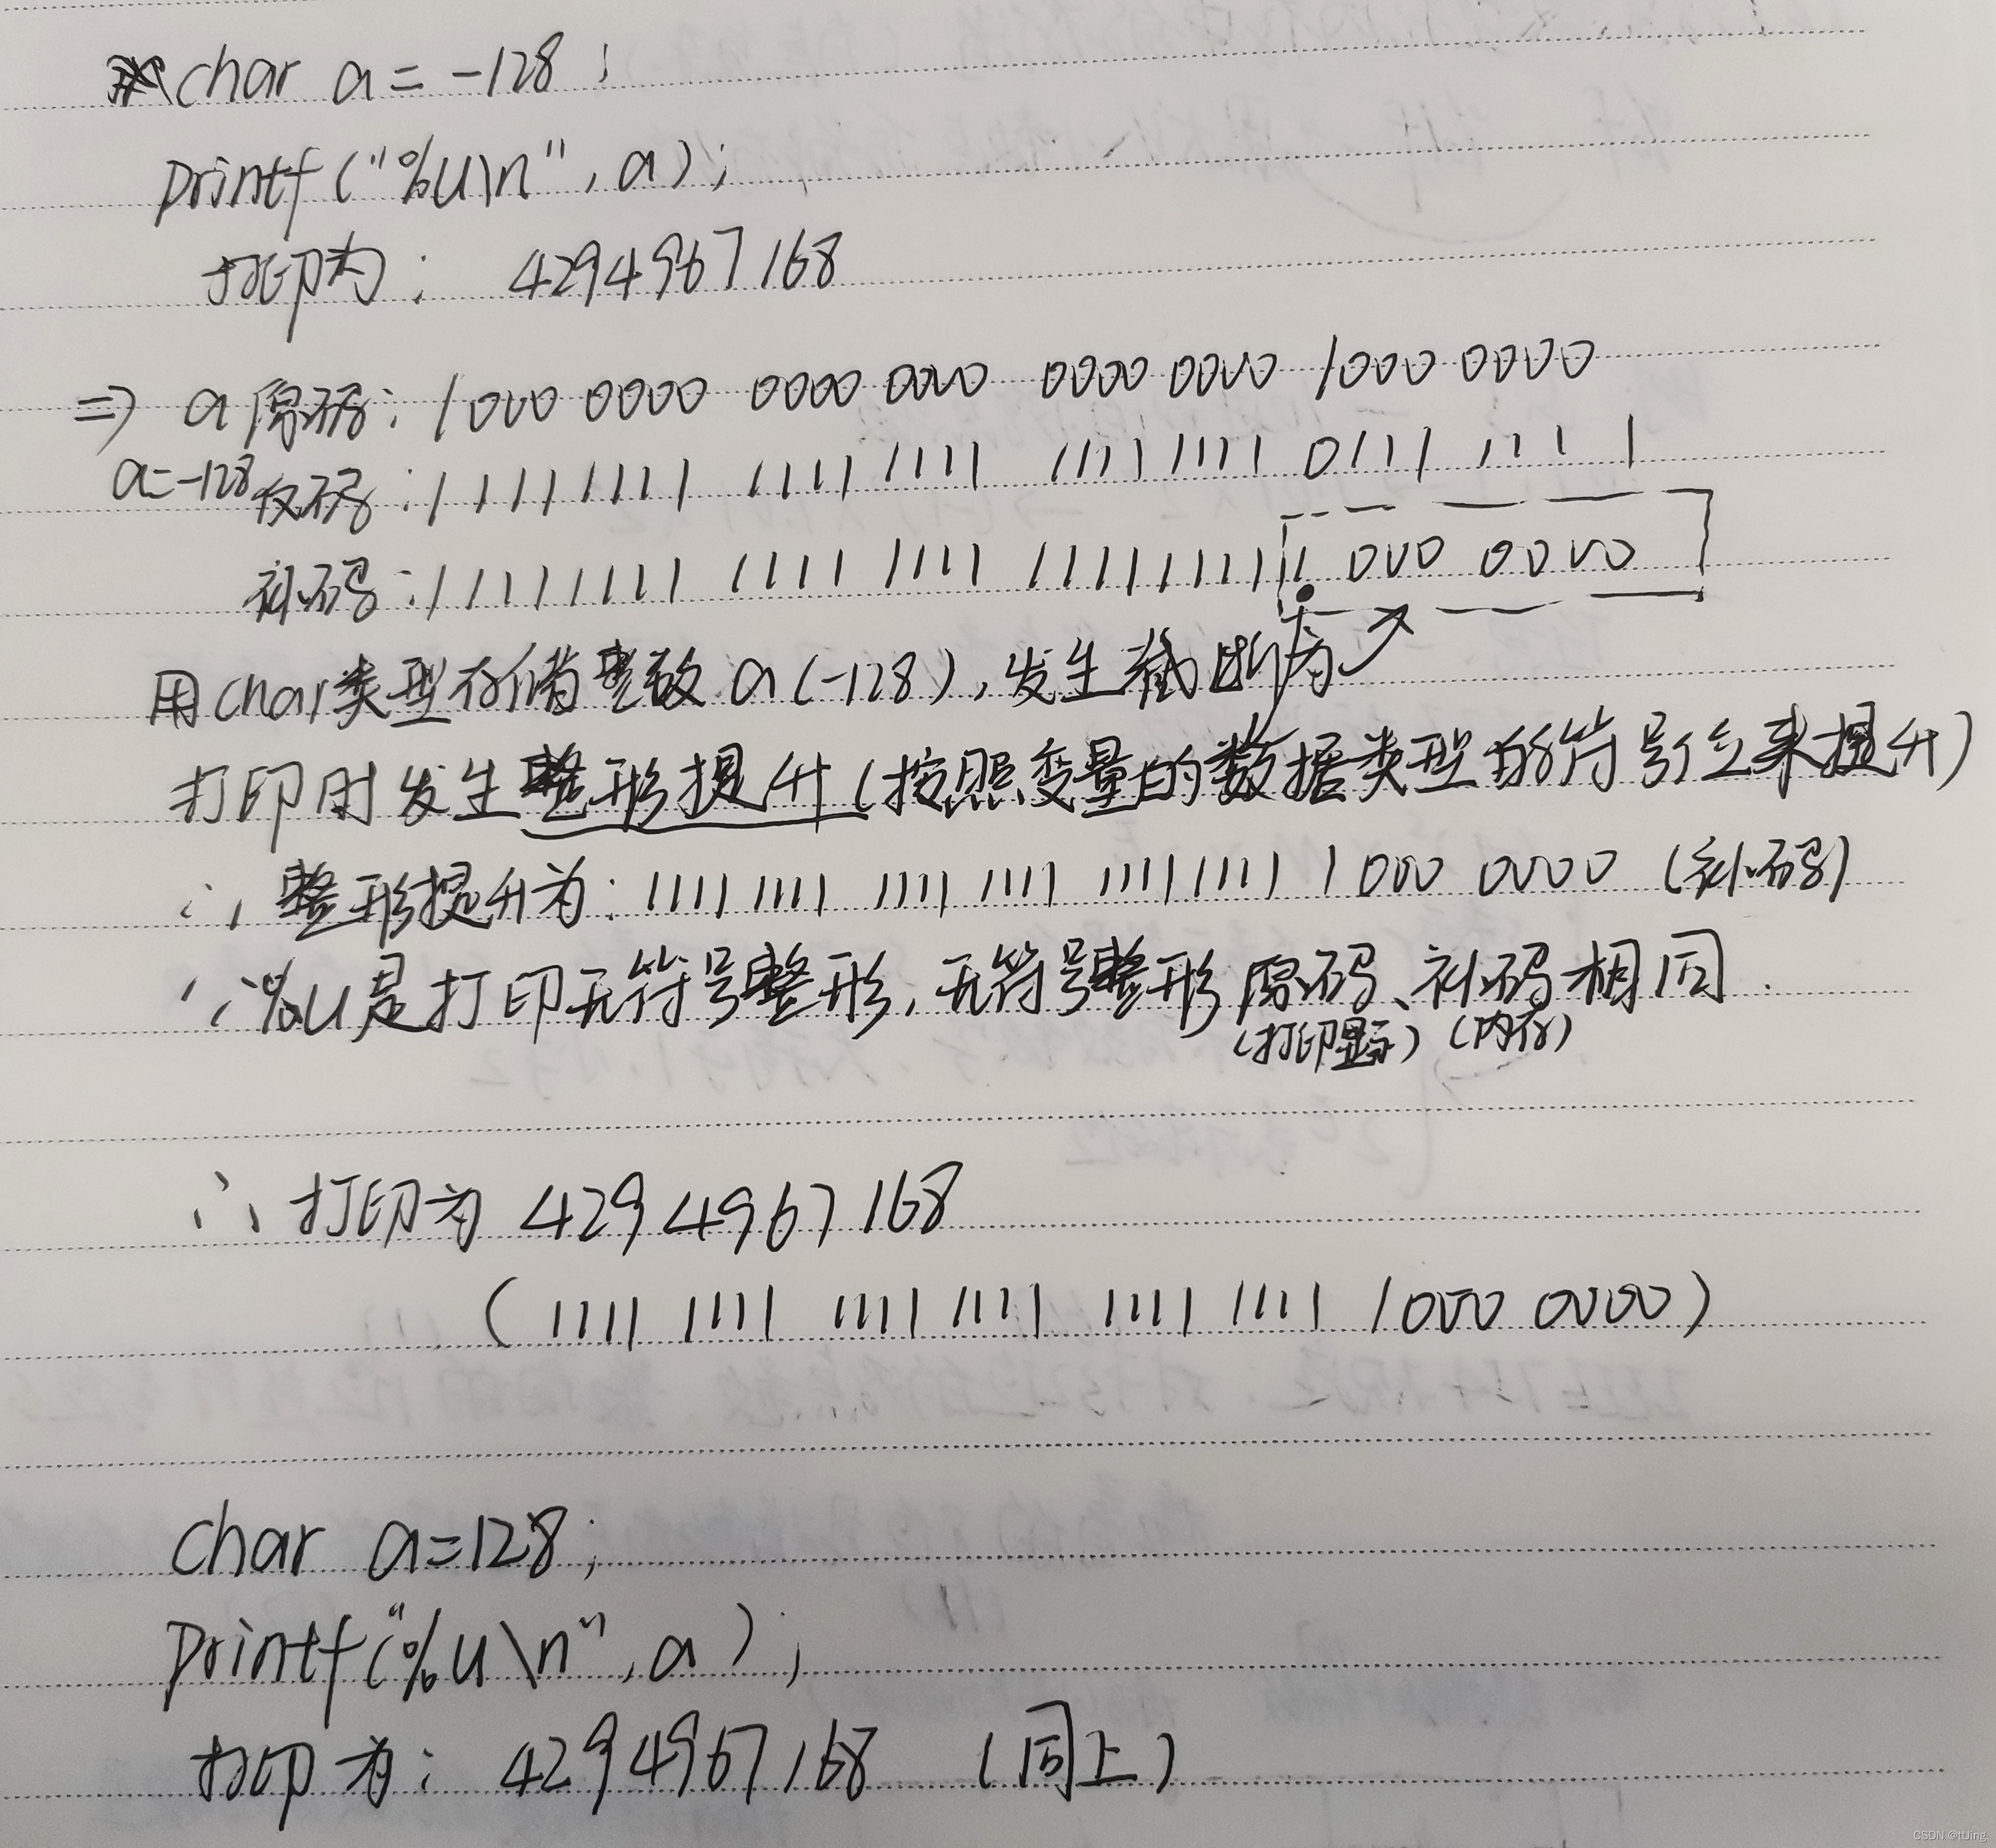 char a = -128;
printf("%u\n", a);
打印为: 4294967168
⇒ a原码: 1000 0000 0000 0000 0000 0000 1000 0000
a=-128 反码: 1111 1111 1111 1111 1111 1111 0111 1111
补码: 1111 1111 1111 1111 1111 1111 1000 0000
用char类型存储整数a(-128),发生截断为↗
打印时发生整形提升(按照变量的数据类型的符号位来提升)
∴整形提升为: 1111 1111 1111 1111 1111 1111 1000 0000 (补码)
∵%u是打印无符号整形,无符号整形原码、补码相同.
(打印显示) (内存)
∴打印为 4294967168
(1111 1111 1111 1111 1111 1111 1000 0000)
char a=128;
printf("%u\n", a);
打印为: 4294967168 (同上)
CSDN @ttJing